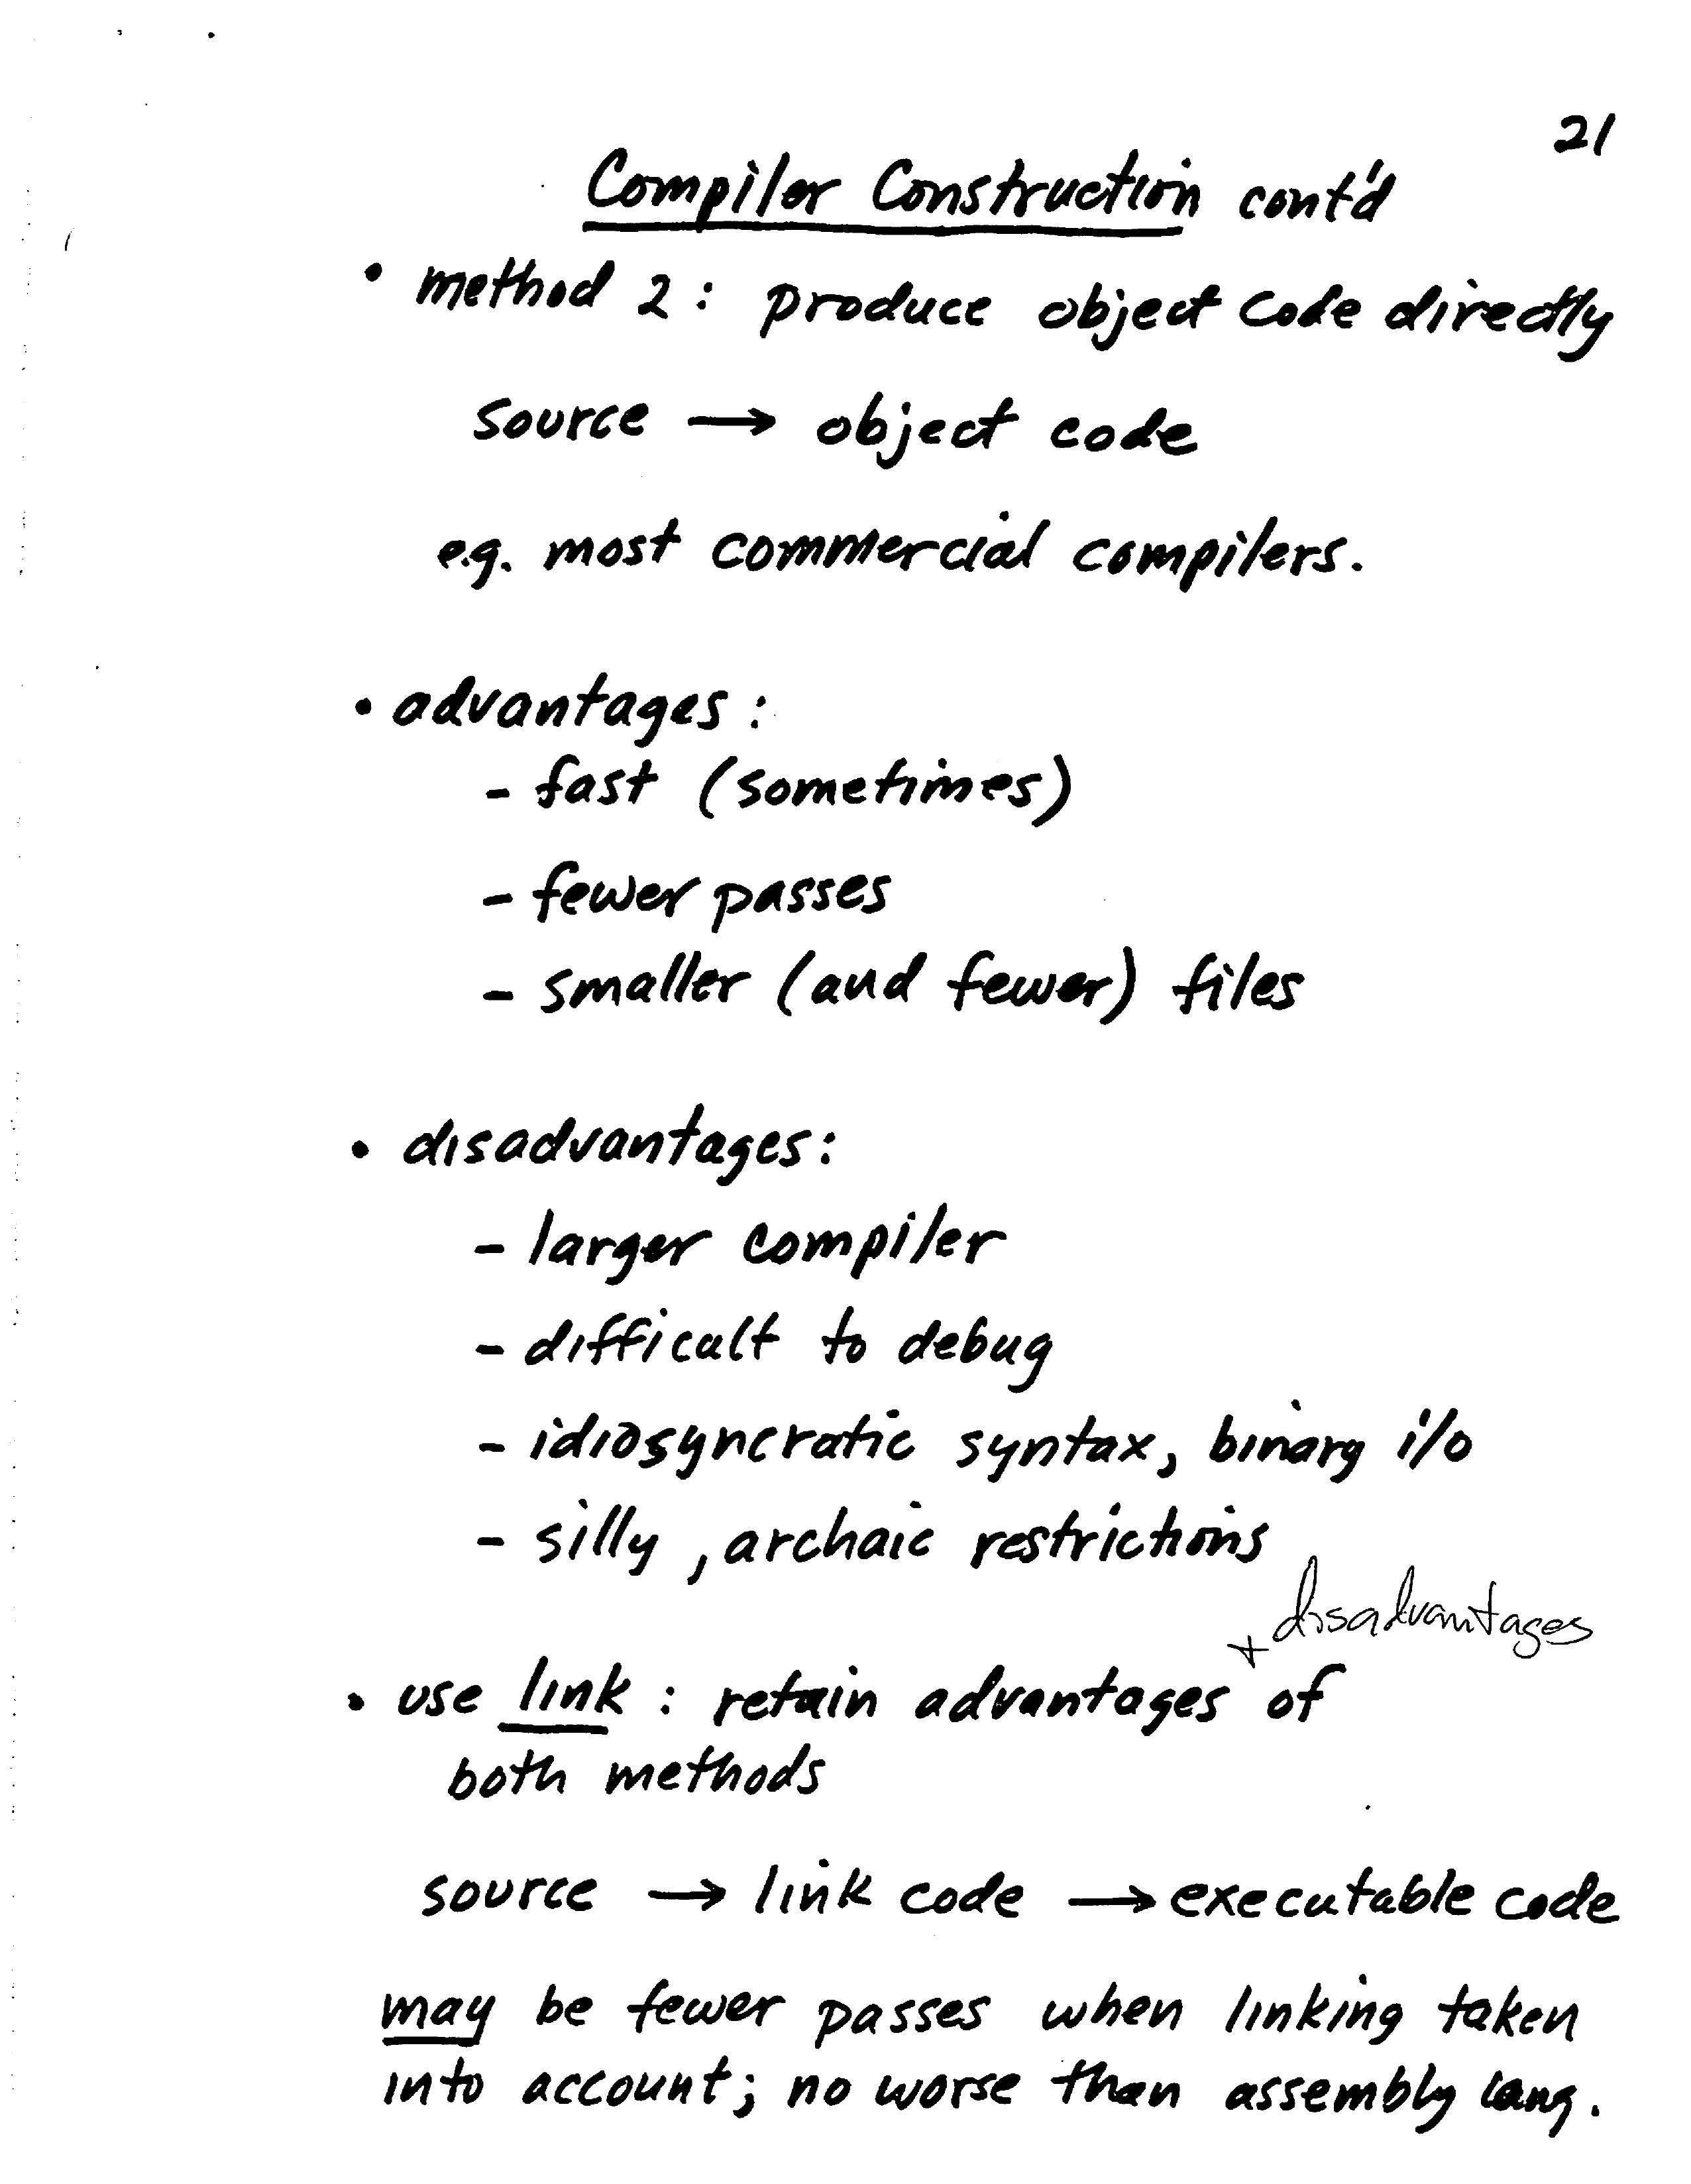 21
Compiler Construction cont'd
• method 2: produce object code directly
source → object code
e.g. most commercial compilers.
• advantages:
- fast (sometimes)
- fewer passes
- smaller (and fewer) files
• disadvantages:
- larger compiler
- difficult to debug
- idiosyncratic syntax, binary i/o
- silly, archaic restrictions
+ disadvantages
• use link: retain advantages of
both methods
source → link code → executable code
may be fewer passes when linking taken
into account; no worse than assembly lang.